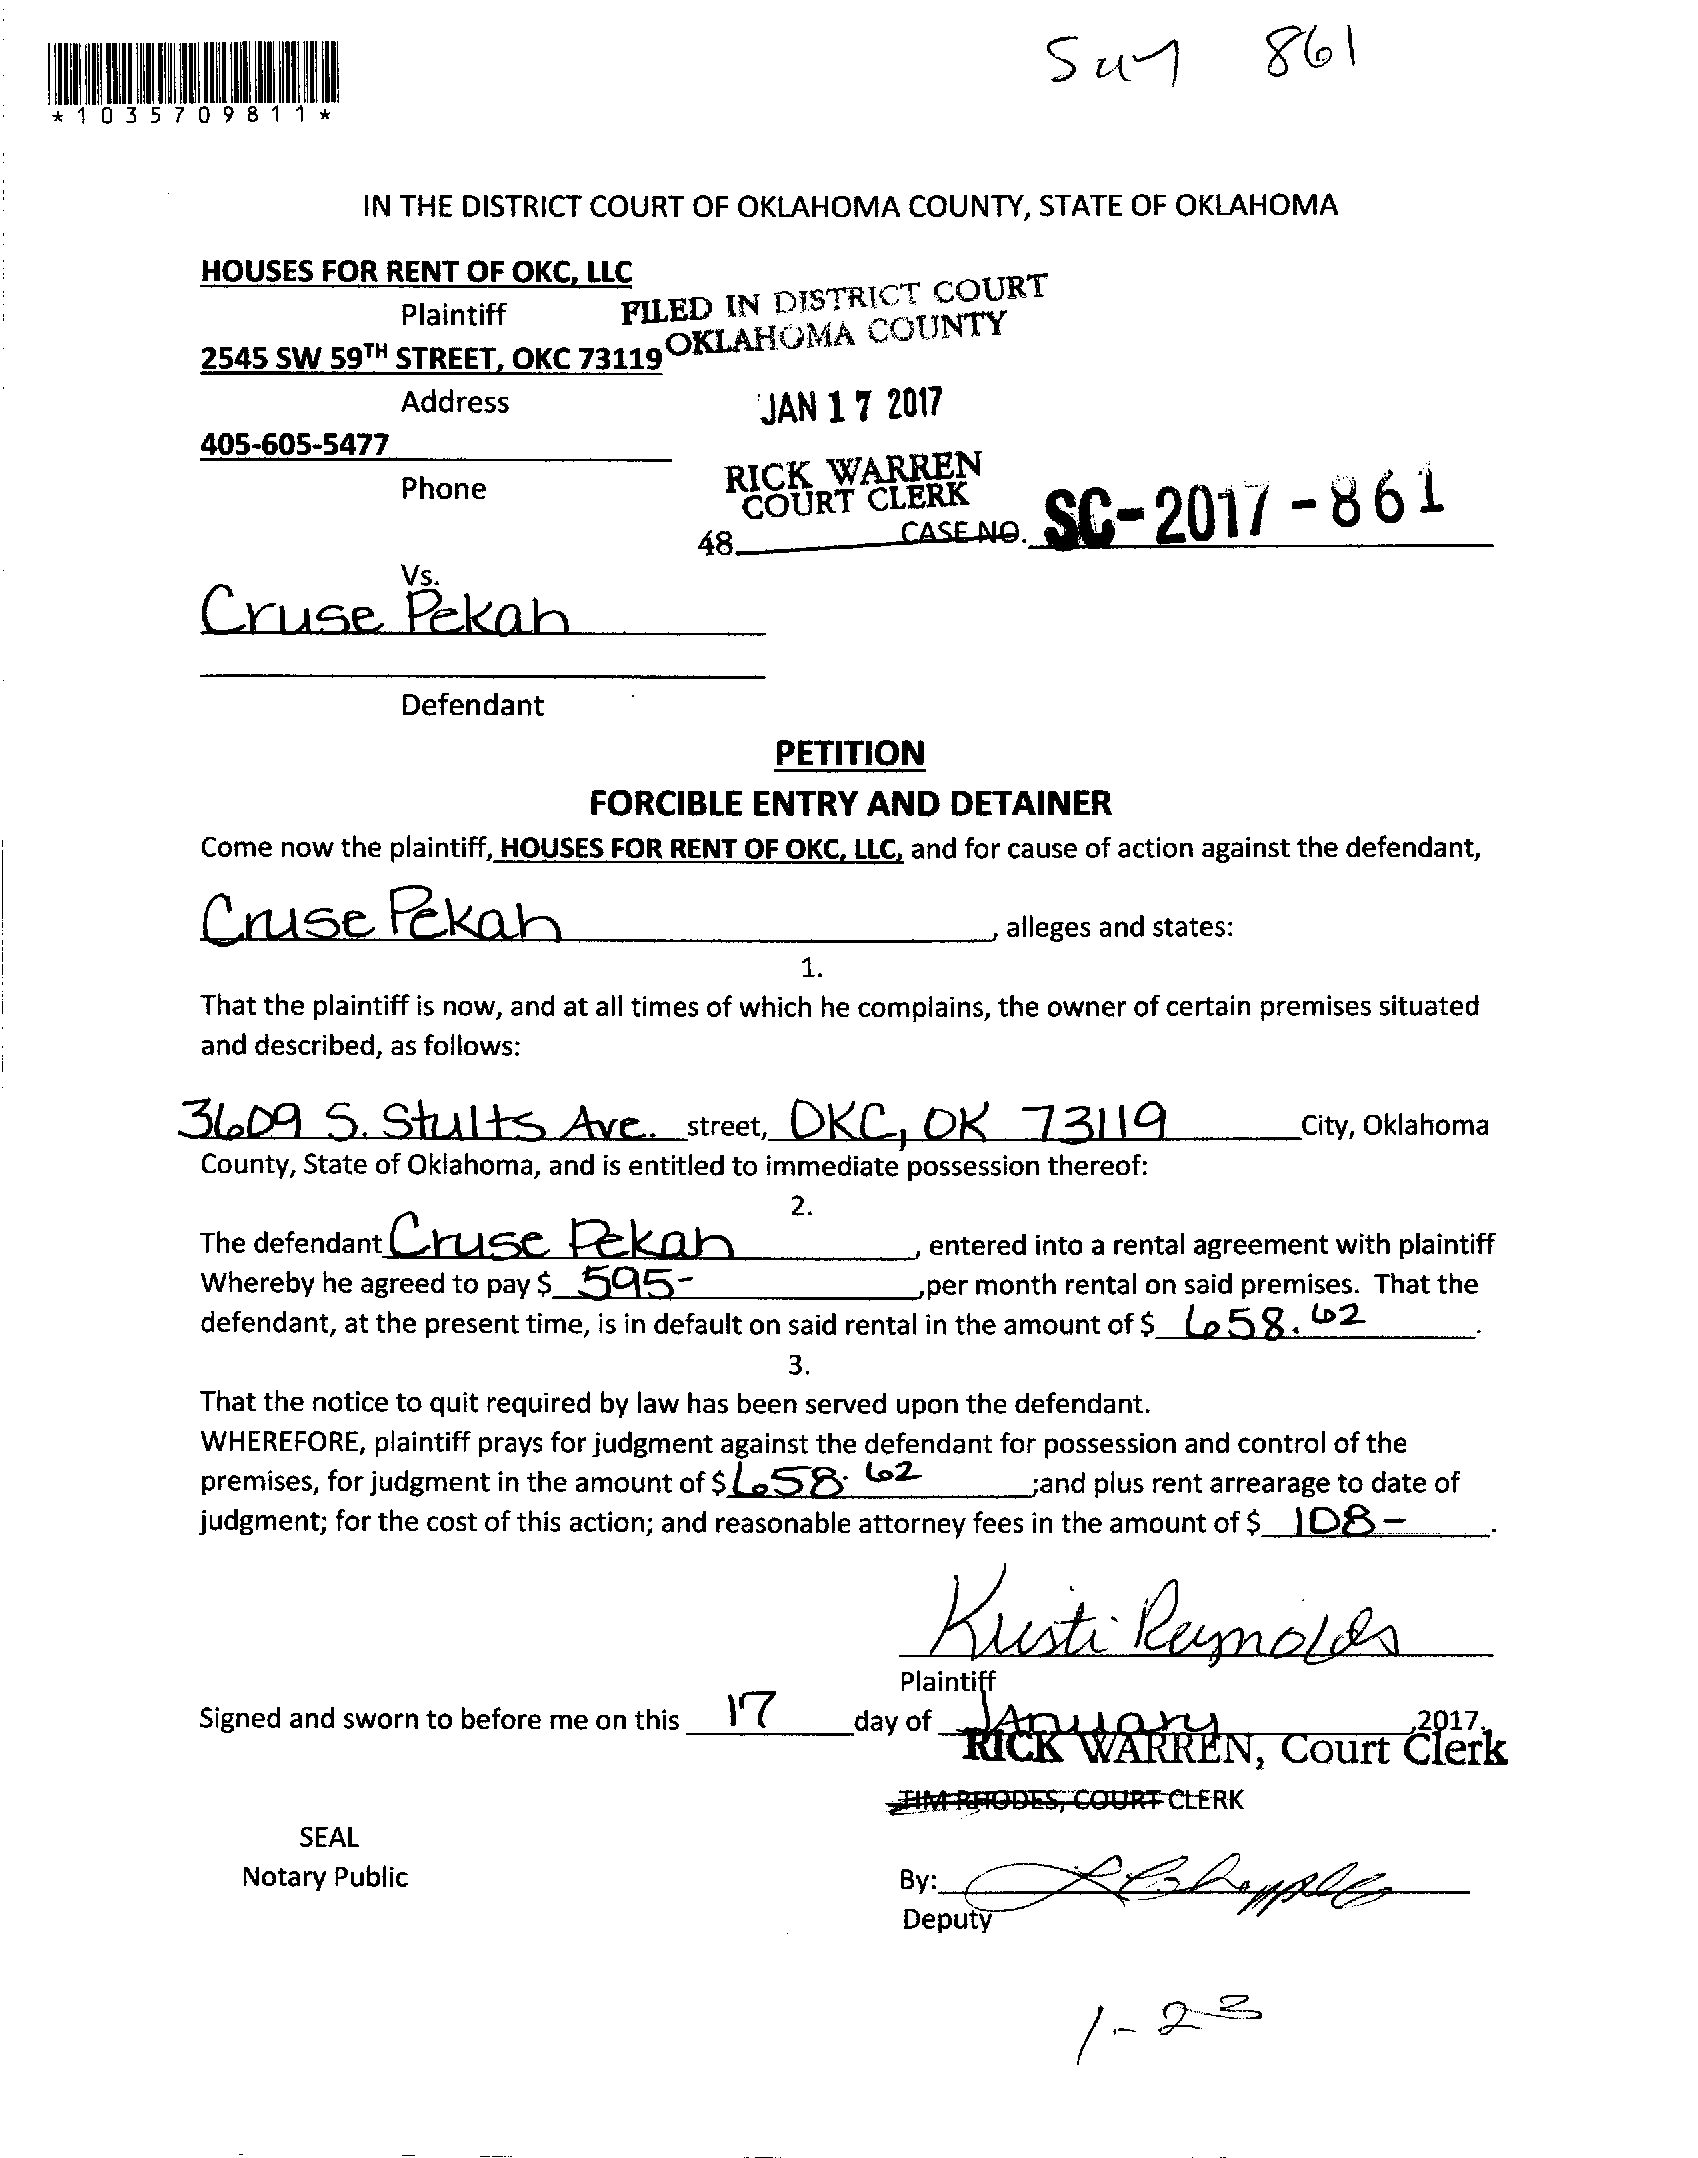 861
*1035709811*
IN THE DISTRICT COURT OF OKLAHOMA COUNTY, STATE OF OKLAHOMA
HOUSES FOR RENT OF OKC, LLC
Plaintiff
FILED IN DISTRICT COURT
OKLAHOMA COUNTY
2545 SW 59TH STREET, OKC 73119
Address
JAN 17 2017
405-605-5477
Phone
RICK WARREN
COURT CLERK
48 CASE NO. SC-2017-861
Vs.
Cruse Pekah
Defendant
PETITION
FORCIBLE ENTRY AND DETAINER
Come now the plaintiff, HOUSES FOR RENT OF OKC, LLC, and for cause of action against the defendant,
Cruse Pekah, alleges and states:
1.
That the plaintiff is now, and at all times of which he complains, the owner of certain premises situated
and described, as follows:
3609 S. Stults Ave. street, OKC, OK 73119 City, Oklahoma
County, State of Oklahoma, and is entitled to immediate possession thereof:
2.
The defendant Cruse Pekah, entered into a rental agreement with plaintiff
Whereby he agreed to pay $ 595- ,per month rental on said premises. That the
defendant, at the present time, is in default on said rental in the amount of $ 658.62.
3.
That the notice to quit required by law has been served upon the defendant.
WHEREFORE, plaintiff prays for judgment against the defendant for possession and control of the
premises, for judgment in the amount of $ 658.62 ;and plus rent arrearage to date of
judgment; for the cost of this action; and reasonable attorney fees in the amount of $ 108-.
Kristi Reynolds
Plaintiff
Signed and sworn to before me on this 17 day of January ,2017.
RICK WARREN, Court Clerk
TIM RHODES, COURT CLERK
SEAL
Notary Public
By:
Deputy
1-23